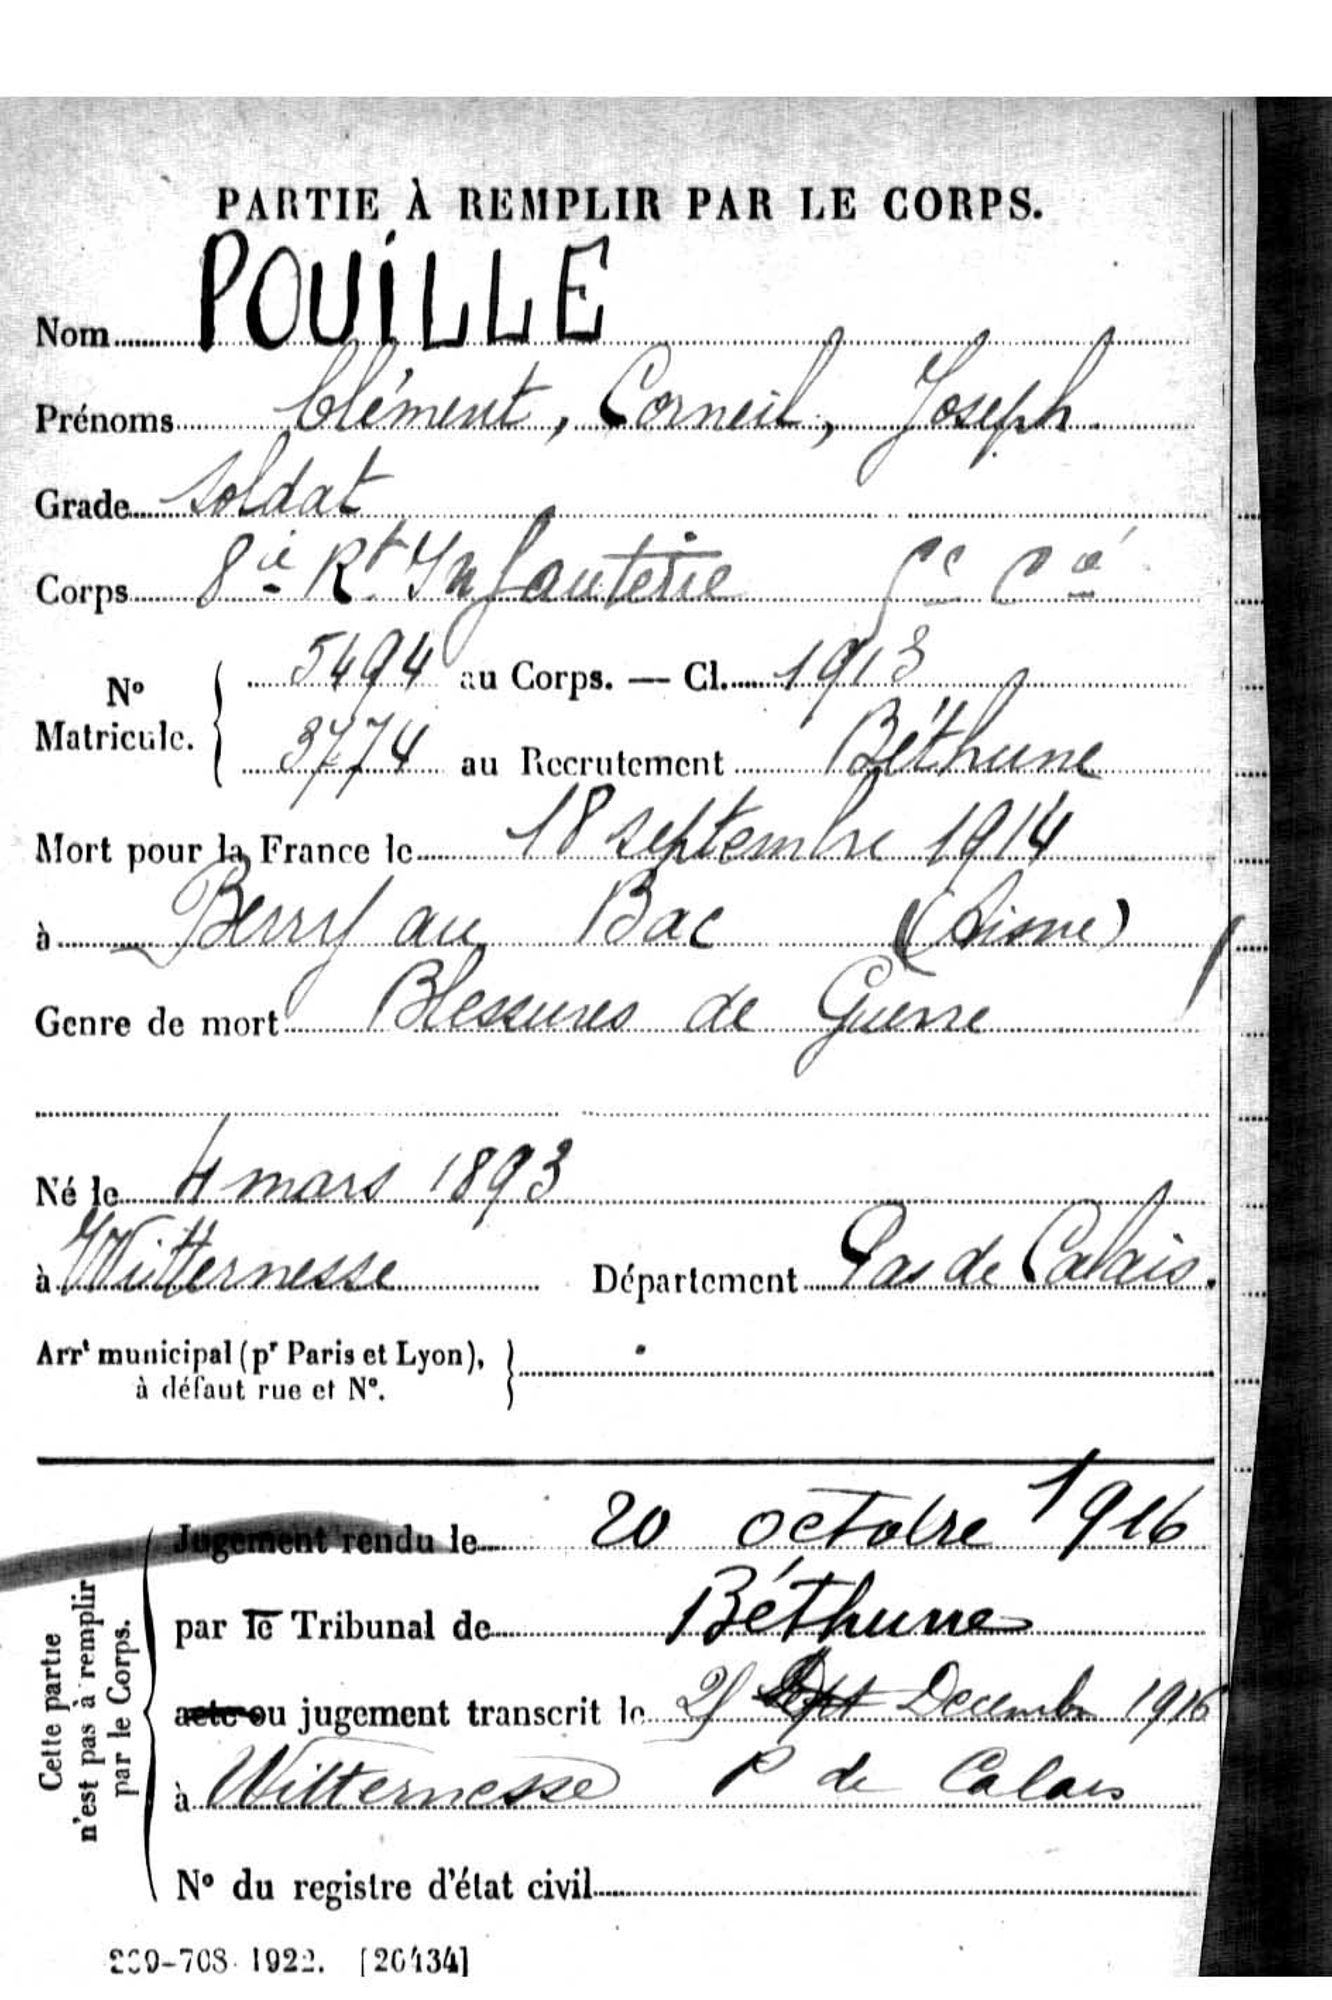 PARTIE À REMPLIR PAR LE CORPS.
Nom POUILLE
Prénoms Clément, Corneil, Joseph
Grade soldat
Corps 8e Rt Infanterie Cie
No Matricule. 5494 au Corps. — Cl. 1913
3774 au Recrutement Béthune
Mort pour la France le 18 septembre 1914
à Berry au Bac (Aisne)
Genre de mort Blessures de Guerre
Né le 4 mars 1893
à Witternesse Département Pas de Calais.
Arrt municipal (pr Paris et Lyon),
à défaut rue et No.
Cette partie
n'est pas à remplir
par le Corps.
Jugement rendu le 20 octobre 1916
par le Tribunal de Béthune
acte ou jugement transcrit le Decembre 1916
à Witternesse P de Calais
No du registre d'état civil
1922. [26434]